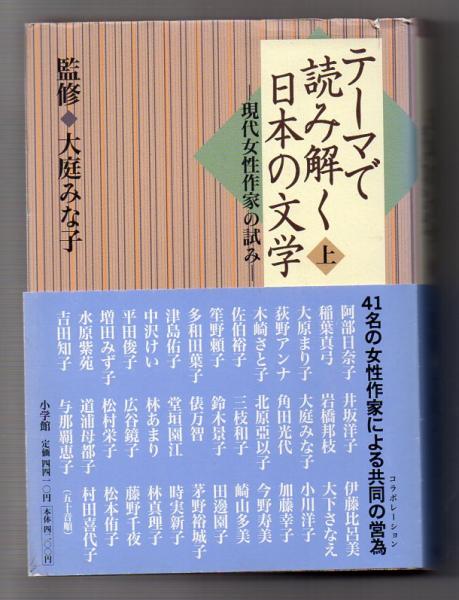 テーマで
読み解く
日本の文学
上
―現代女性作家の試み―
監修◆大庭みな子
41名の女性作家による共同の営為
コラボレーション
阿部日奈子 井坂洋子 伊藤比呂美
稲葉真弓 岩橋邦枝 大下さなえ
大原まり子 大庭みな子 小川洋子
荻野アンナ 角田光代 加藤幸子
木崎さと子 北原亞以子 今野寿美
佐伯裕子 三枝和子 崎山多美
笙野頼子 鈴木景子 田邊園子
多和田葉子 俵万智 茅野裕城子
津島佑子 堂垣園江 時実新子
中沢けい 林あまり 林真理子
平田俊子 広谷鏡子 藤野千夜
増田みず子 松村栄子 松本侑子
水原紫苑 道浦母都子 村田喜代子
吉田知子 与那覇恵子 (五十音順)
小学館 定価四四一〇円 [本体四二〇〇円]